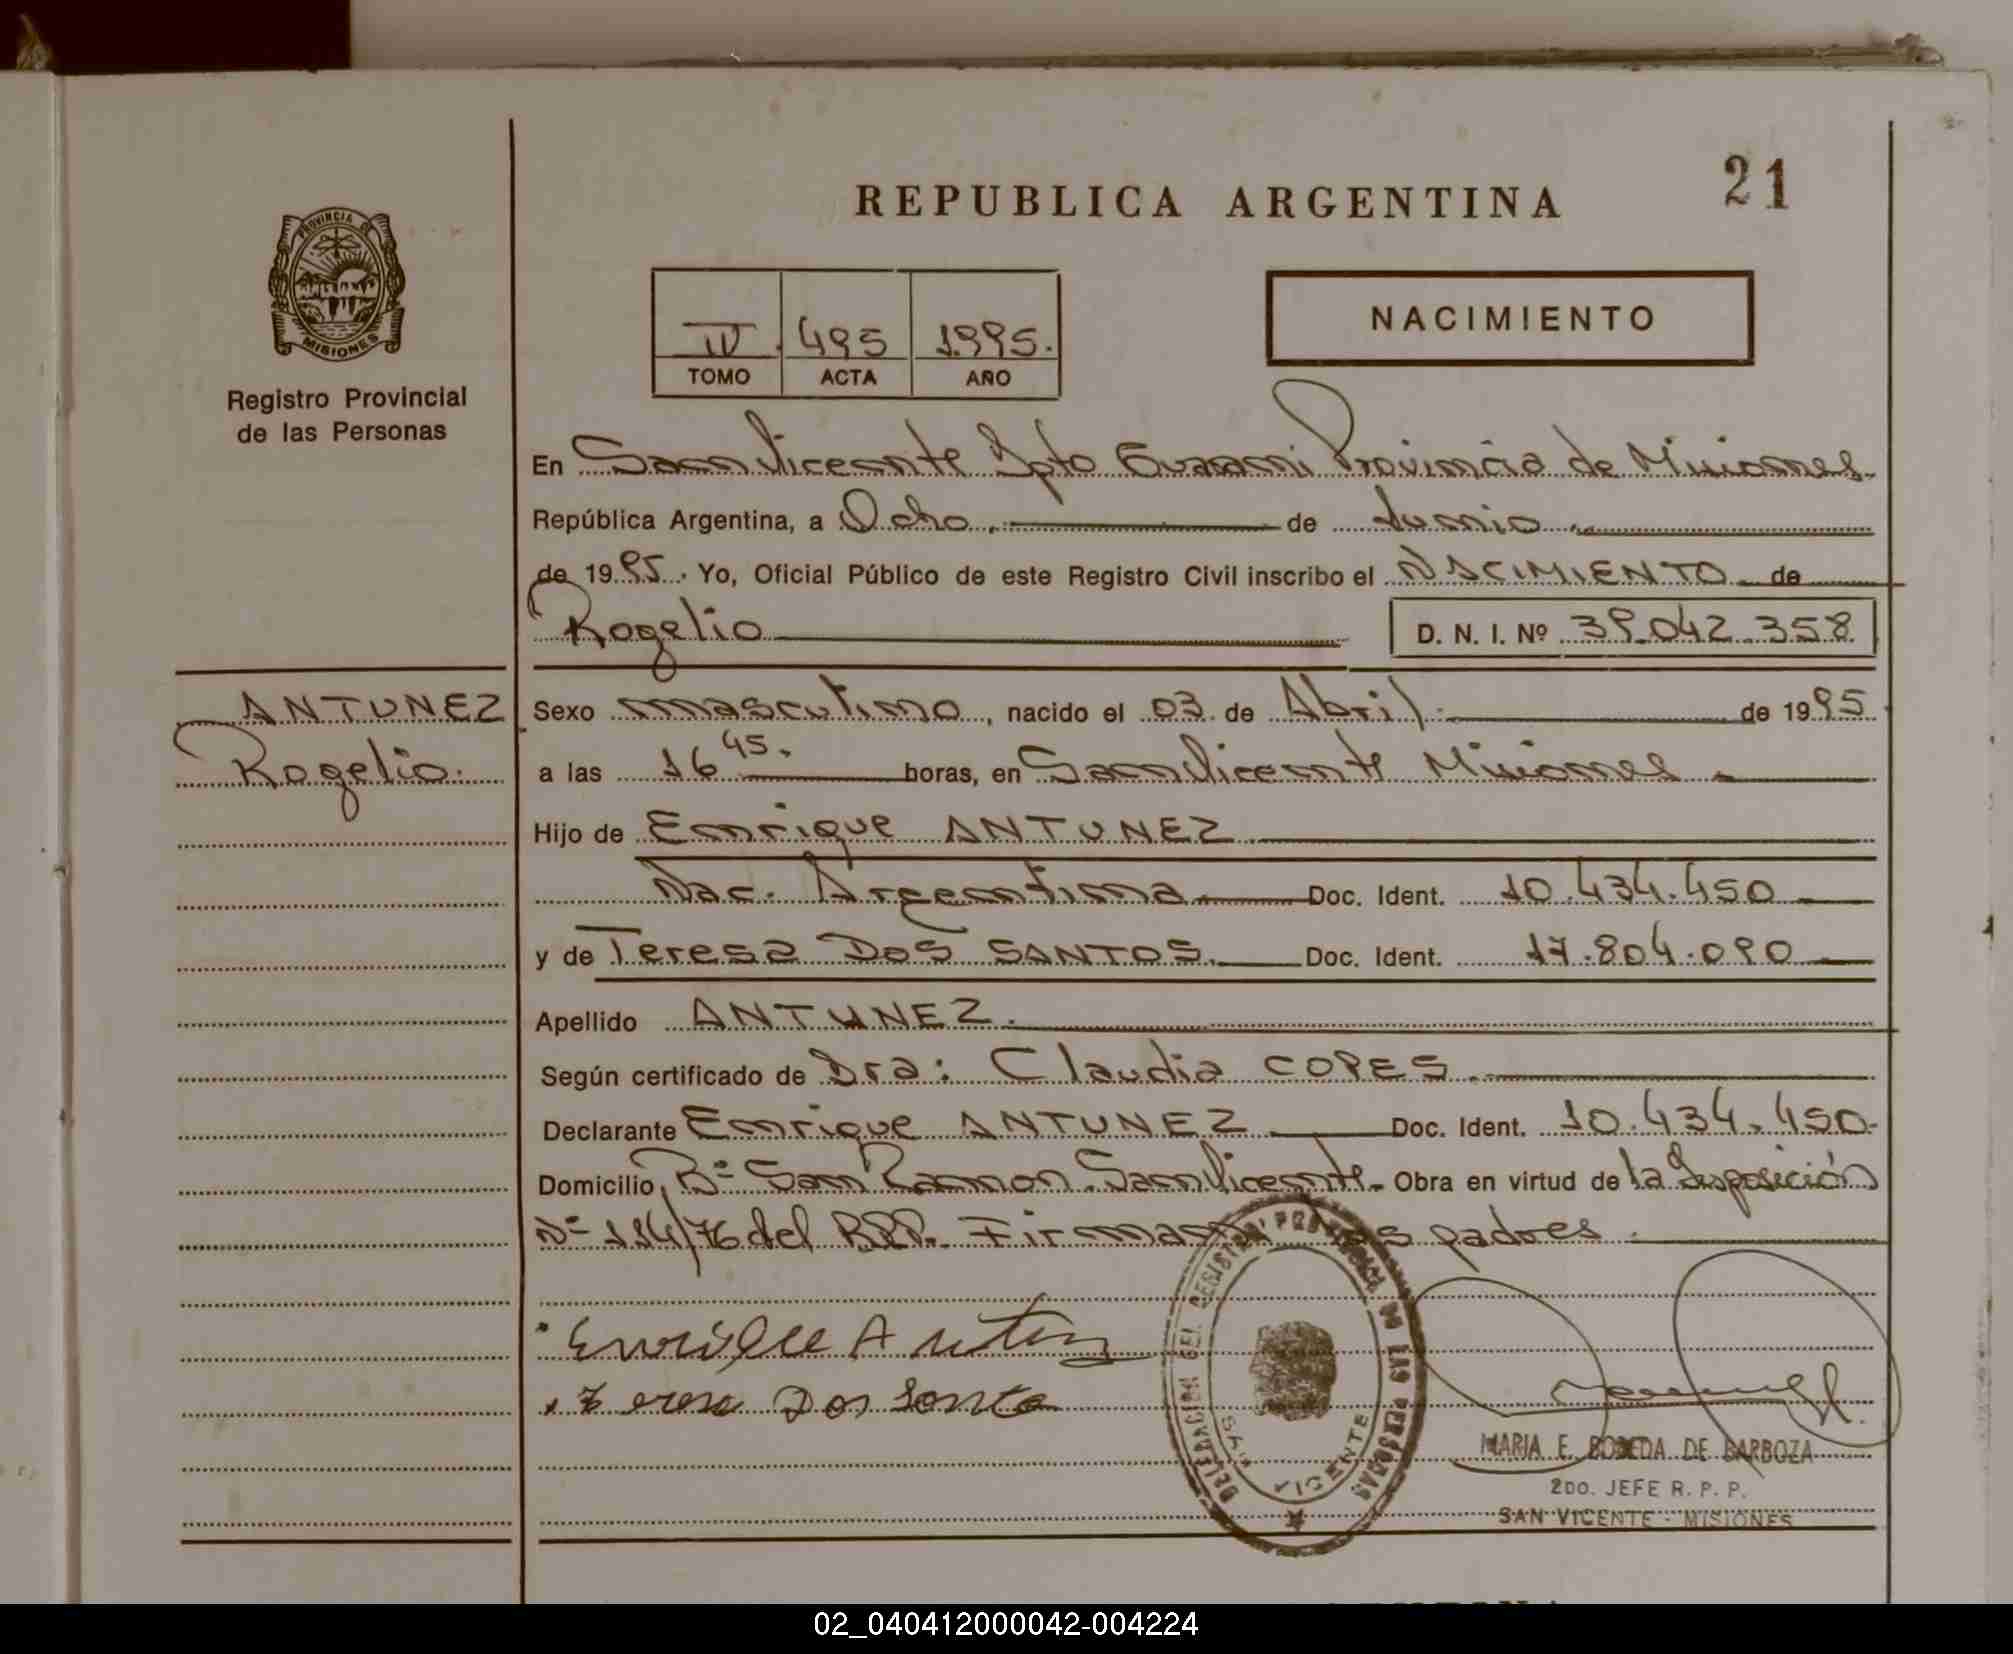 REPUBLICA ARGENTINA
21
PROVINCIA DE
MISIONES
Registro Provincial
de las Personas
NACIMIENTO
IV. 495 1995.
TOMO ACTA AÑO
En San Vicente Dpto Guarani Provincia de Misiones.
República Argentina, a Ocho. de Junio
de 1995. Yo, Oficial Público de este Registro Civil inscribo el NACIMIENTO de
Rogelio
D. N. I. Nº 39.042.358
ANTUNEZ
Rogelio.
Sexo masculino, nacido el 03 de Abril de 1995
a las 16 45. horas, en San Vicente Misiones
Hijo de Enrique ANTUNEZ
Nac. Argentina Doc. Ident. 10.434.450
y de Teresa DOS SANTOS. Doc. Ident. 17.804.090
Apellido ANTUNEZ.
Según certificado de Dra: Claudia COPES
Declarante Enrique ANTUNEZ Doc. Ident. 10.434.450-
Domicilio Bº San Ramon. San Vicente- Obra en virtud de la Disposición
Nº 114/76 del RPP. Firman los padres.
Enrique Antunez
Teresa Dos Santo
DELEGACION DEL REGISTRO PROVINCIAL DE LAS PERSONAS
SAN VICENTE
MARIA E. DE BARBOZA
2DO. JEFE R. P. P.
SAN VICENTE - MISIONES
02_040412000042-004224